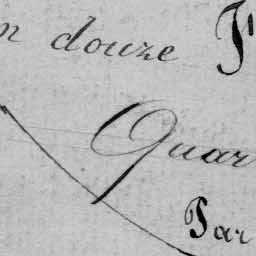 n douze F
Quar
Par